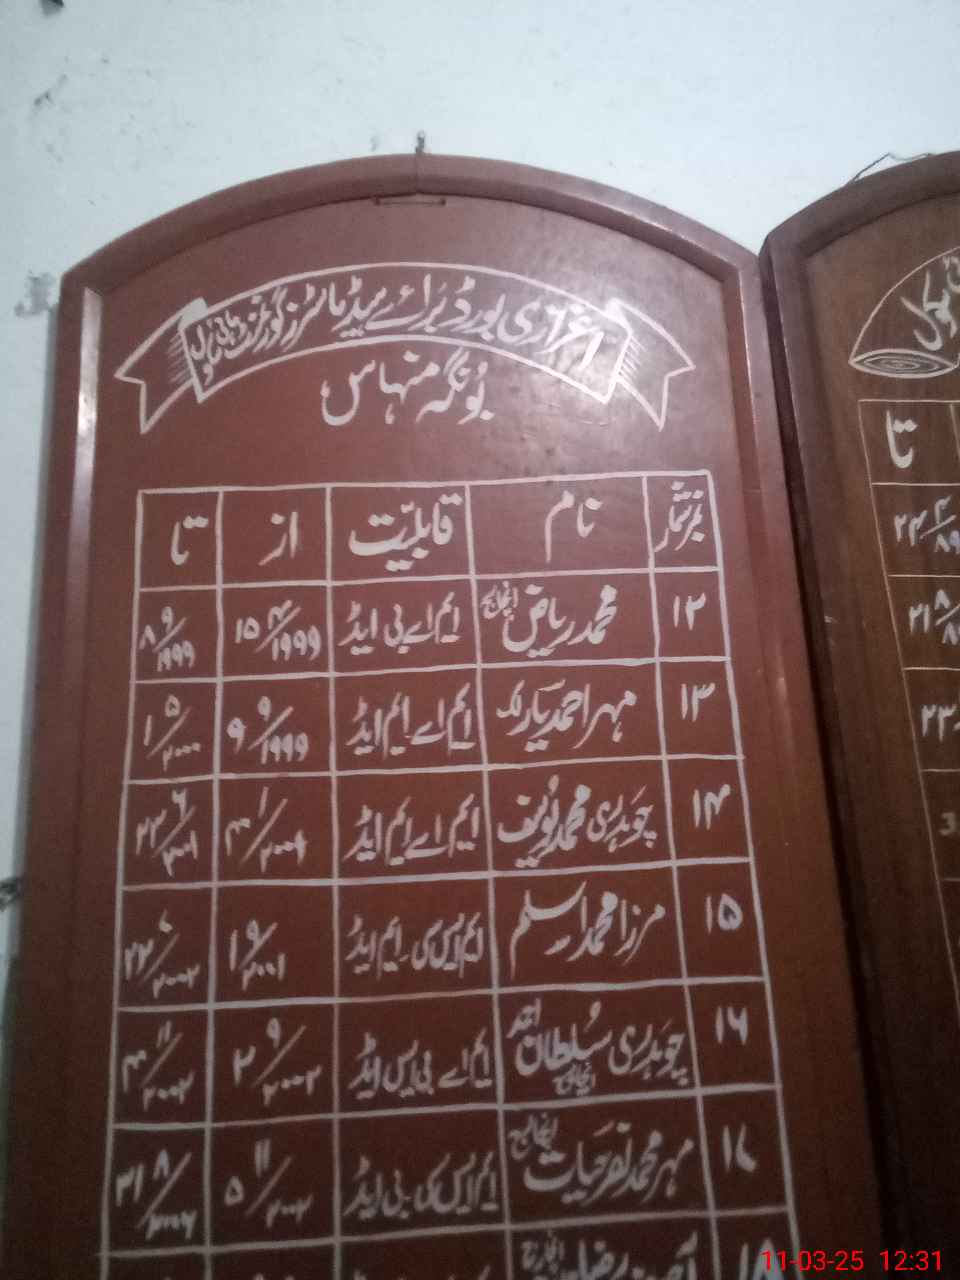 اعزازی بورڈ برائے ہیڈ ماسٹرز گورنمنٹ ہائی سکول
بُونگہ منہاس
نمبر شمار نام قابلیّت از تا
۱۲ محمد ریاض انچارج ایم اے بی ایڈ ۱۵/۴/۱۹۹۹ ۸/۹/۱۹۹۹
۱۳ مہر احمد یار لک ایم اے ایم ایڈ ۹/۹/۱۹۹۹ ۱/۵/۲۰۰۰
۱۴ چوہدری محمد یُوسف ایم اے ایم ایڈ ۴/۱/۲۰۰۱ ۲۳/۶/۲۰۰۱
۱۵ مرزا محمد اسلم ایم ایس سی ایم ایڈ ۱/۹/۲۰۰۱ ۲۲/۸/۲۰۰۲
۱۶ چوہدری سُلطان احمد انچارج ایم اے بی ایس ایڈ ۲/۹/۲۰۰۲ ۴/۱۱/۲۰۰۲
۱۷ مہر محمد ظفر حیات انچارج ایم ایس سی بی ایڈ ۵/۱۱/۲۰۰۲ ۳۱/۸/۲۰۰۶
۱۸ انچارج
سکول
تا
۲۴/۴/۸۹
۲۱/۸/۸۹
۲۳
11-03-25 12:31